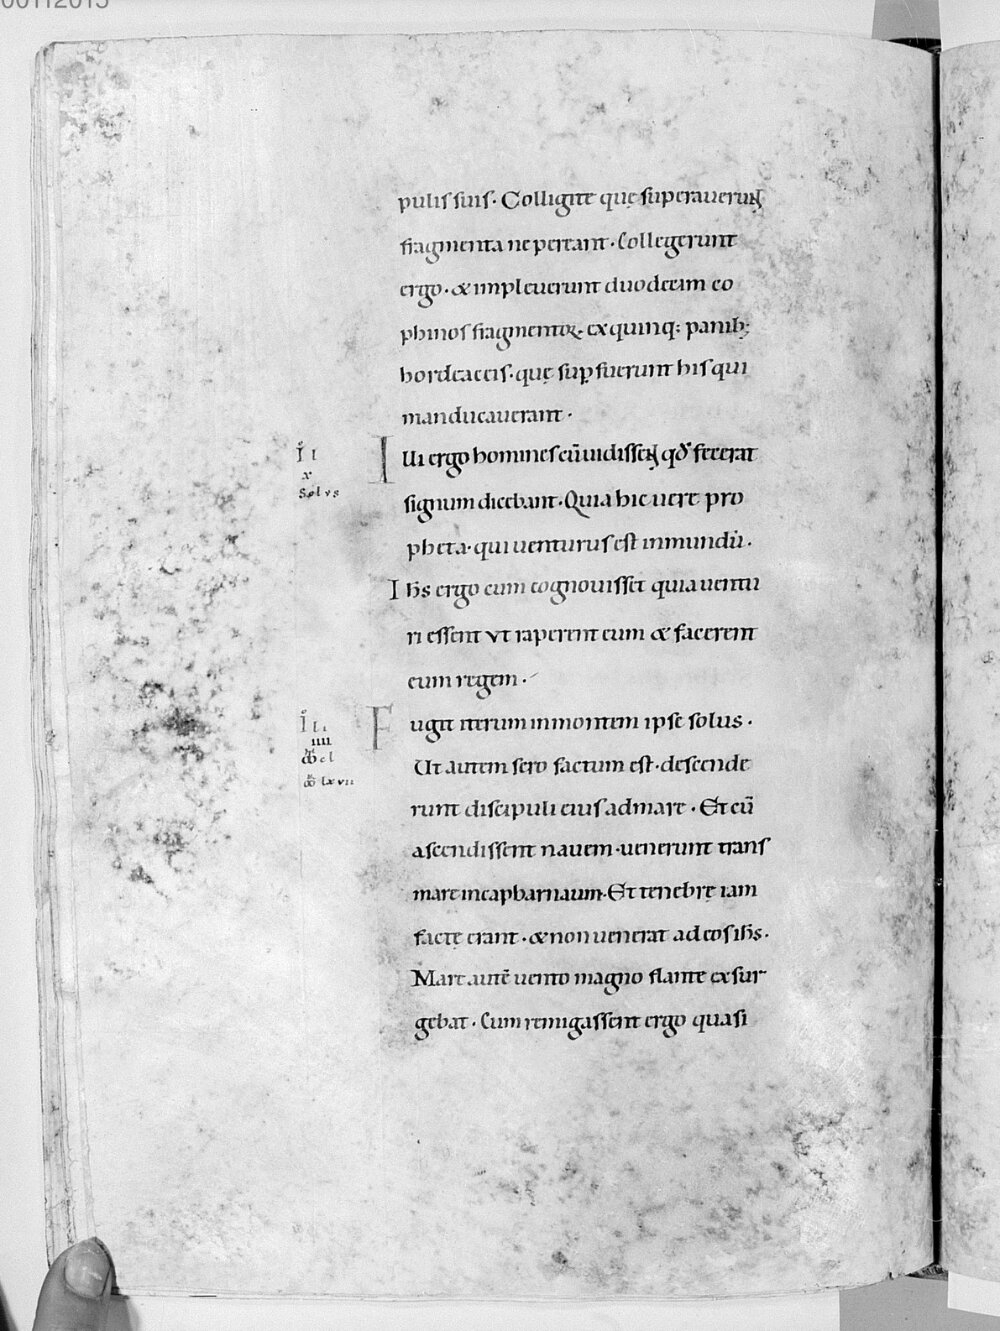 00112015
pulis suis. Colligite quę superauerunt
fragmenta ne pereant. Collegerunt
ergo. & impleuerunt duodecim co
phinos fragmentoꝝ. ex quinq: panib;
hordeaceis. quę suꝑfuerunt his qui
manducauerant.
Illi ergo homines cū uidissent qđ fecerat
signum dicebant. Quia hic uere pro
pheta. qui uenturus est inmundū.
Ihs ergo cum cognouisset quia uentu
ri essent vt raperent eum & facerent
eum regem.
Fugit iterum inmontem ipse solus.
Ut autem sero factum est. descende
runt discipuli eius admare. Et cū
ascendissent nauem. uenerunt trans
mare incapharnaum. Et tenebrę iam
factę erant. & non uenerat ad eos ihs.
Mare autē uento magno flante exsur
gebat. Cum remigassent ergo quasi
l
x
Solvs
lı
ıııı
cl
lxvıı